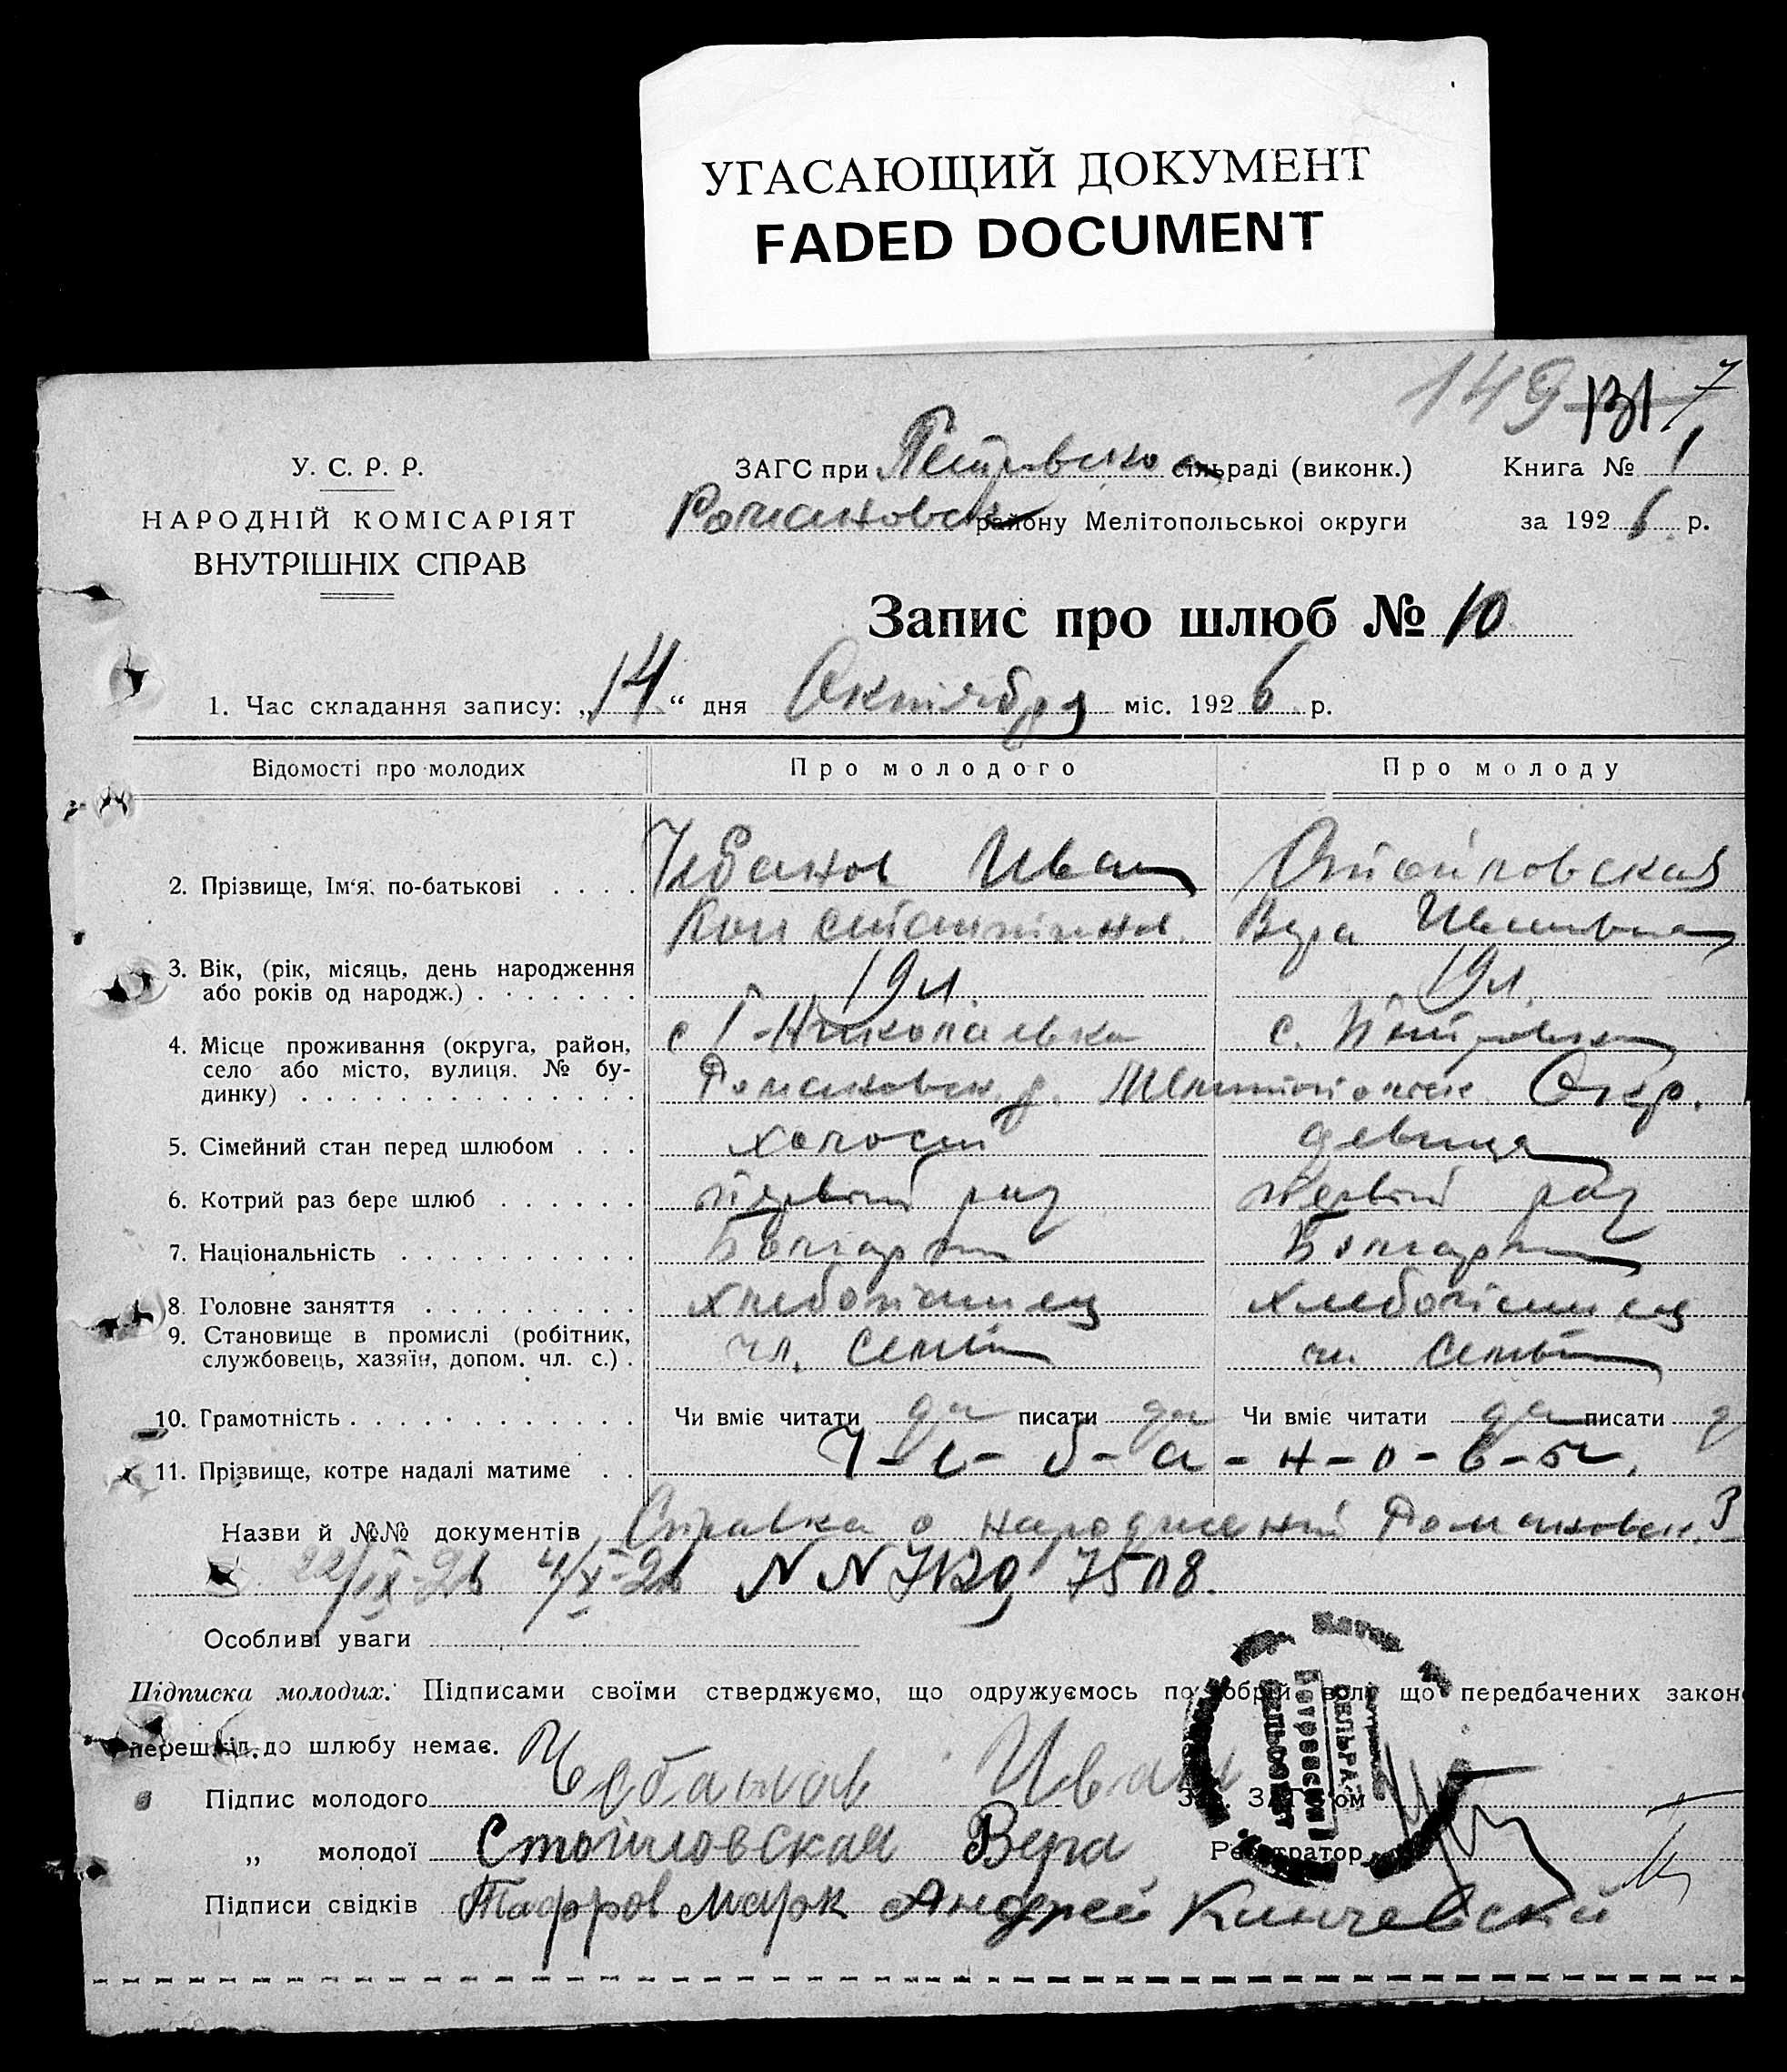 УГАСАЮЩИЙ ДОКУМЕНТ
FADED DOCUMENT
149 131 7
У. С. Р. Р.
НАРОДНІЙ КОМІСАРІЯТ
ВНУТРІШНІХ СПРАВ
ЗАГС при Петровско сільраді (виконк.) Книга № 1
Романовск району Мелітопольської округи за 1926 р.
Запис про шлюб № 10
1. Час складання запису: „14“ дня Октября міс. 1926 р.
Відомості про молодих Про молодого Про молоду
2. Прізвище, Ім'я, по-батькові . . . . Чебанов Иван Стойловская
Константинов. Вера Ивановна
3. Вік, (рік, місяць, день народження
або років од народж.) . . . . . . . 19 л. 19 л.
4. Місце проживання (округа, район,
село або місто, вулиця, № бу-
динку) . . . . . . . . . . . . . .
с Г-Николаевка с. Петровка
Романовск. р. Мелитопольск. Окр.
5. Сімейний стан перед шлюбом . . . холост девица
6. Котрий раз бере шлюб . . . . . . первый раз первый раз
7. Національність . . . . . . . . . . Болгарин Болгарин
8. Головне заняття . . . . . . . . . хлебопашец хлебопашец
9. Становище в промислі (робітник,
службовець, хазяїн, допом. чл. с.) . чл. семьи чл семьи
10. Грамотність . . . . . . . . . . . . Чи вміє читати да писати да Чи вміє читати да писати д
11. Прізвище, котре надалі матиме . . Ч-е-б-а-н-о-в-ы.
Назви й №№ документів Справка о народжений Романовск. З
22/IX-26 4/X-26 N N 7508.
Особливі уваги
Підписка молодих. Підписами своїми стверджуємо, що одружуємось по добрій волі що передбачених закон
перешкід до шлюбу немає.
Підпис молодого Чебанов Иван Зав. ЗАГСом
„ молодої Стойловская Вера Реєстратор
Підписи свідків Тафров Марк Андрей Кинчевский
Петровский
СЕЛЬСОВЕТ